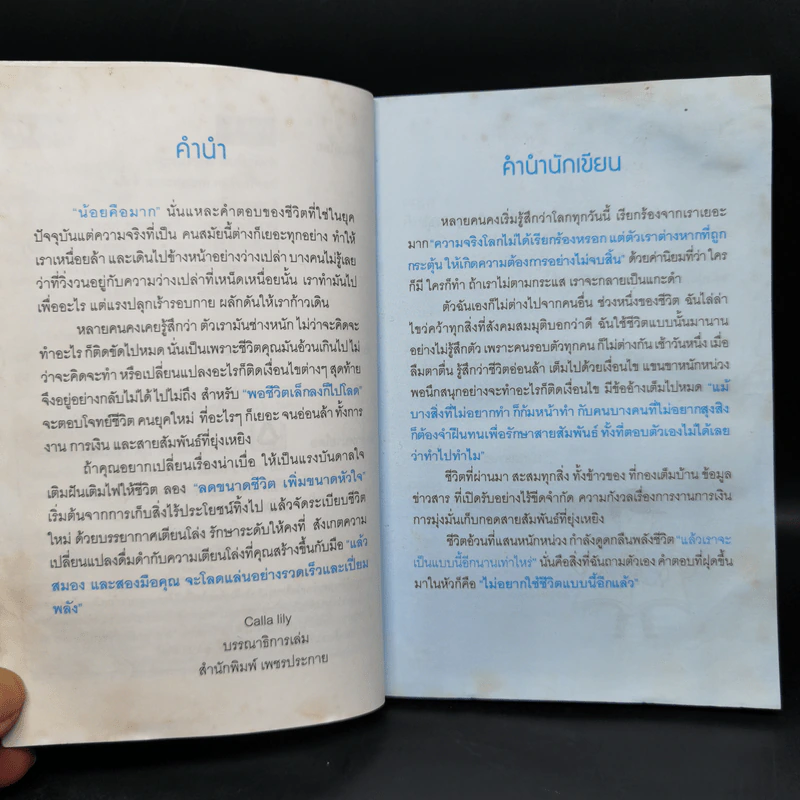 คำนำ
"น้อยคือมาก" นั่นแหละคำตอบของชีวิตที่ใช่ในยุค
ปัจจุบันแต่ความจริงที่เป็น คนสมัยนี้ต่างก็เยอะทุกอย่าง ทำให้
เราเหนื่อยล้า และเดินไปข้างหน้าอย่างว่างเปล่า บางคนไม่รู้เลย
ว่าที่วิ่งวนอยู่กับความว่างเปล่าที่เหน็ดเหนื่อยนั้น เราทำมันไป
เพื่ออะไร แต่แรงปลุกเร้ารอบกาย ผลักดันให้เราก้าวเดิน
หลายคนคงเคยรู้สึกว่า ตัวเรามันช่างหนัก ไม่ว่าจะคิดจะ
ทำอะไร ก็ติดขัดไปหมด นั่นเป็นเพราะชีวิตคุณมันอ้วนเกินไป ไม่
ว่าจะคิดจะทำ หรือเปลี่ยนแปลงอะไรก็ติดเงื่อนไขต่างๆ สุดท้าย
จึงอยู่อย่างกลับไม่ได้ ไปไม่ถึง สำหรับ "พอชีวิตเล็กลงก็ไปโลด"
จะตอบโจทย์ชีวิต คนยุคใหม่ ที่อะไรๆ ก็เยอะ จนอ่อนล้า ทั้งการ
งาน การเงิน และสายสัมพันธ์ที่ยุ่งเหยิง
ถ้าคุณอยากเปลี่ยนเรื่องน่าเบื่อ ให้เป็นแรงบันดาลใจ
เติมฝันเติมไฟให้ชีวิต ลอง "ลดขนาดชีวิต เพิ่มขนาดหัวใจ"
เริ่มต้นจากการเก็บสิ่งไร้ประโยชน์ทิ้งไป แล้วจัดระเบียบชีวิต
ใหม่ ด้วยบรรยากาศเตียนโล่ง รักษาระดับให้คงที่ สังเกตความ
เปลี่ยนแปลงดื่มด่ำกับความเตียนโล่งที่คุณสร้างขึ้นกับมือ "แล้ว
สมอง และสองมือคุณ จะโลดแล่นอย่างรวดเร็วและเปี่ยม
พลัง"
Calla lily
บรรณาธิการเล่ม
สำนักพิมพ์ เพชรประกาย
คำนำนักเขียน
หลายคนคงเริ่มรู้สึกว่าโลกทุกวันนี้ เรียกร้องจากเราเยอะ
มาก "ความจริงโลกไม่ได้เรียกร้องหรอก แต่ตัวเราต่างหากที่ถูก
กระตุ้น ให้เกิดความต้องการอย่างไม่จบสิ้น" ด้วยค่านิยมที่ว่า ใคร
ก็มี ใครก็ทำ ถ้าเราไม่ตามกระแส เราจะกลายเป็นแกะดำ
ตัวฉันเองก็ไม่ต่างไปจากคนอื่น ช่วงหนึ่งของชีวิต ฉันไล่ล่า
ไขว่คว้าทุกสิ่งที่สังคมสมมุติบอกว่าดี ฉันใช้ชีวิตแบบนั้นมานาน
อย่างไม่รู้สึกตัว เพราะคนรอบตัวทุกคน ก็ไม่ต่างกัน เช้าวันหนึ่ง เมื่อ
ลืมตาตื่น รู้สึกว่าชีวิตอ่อนล้า เต็มไปด้วยเงื่อนไข แขนขาหนักหน่วง
พอนึกสนุกอย่างจะทำอะไรก็ติดเงื่อนไข มีข้ออ้างเต็มไปหมด "แม้
บางสิ่งที่ไม่อยากทำ ก็ก้มหน้าทำ กับคนบางคนที่ไม่อยากสุงสิง
ก็ต้องจำฝืนทนเพื่อรักษาสายสัมพันธ์ ทั้งที่ตอบตัวเองไม่ได้เลย
ว่าทำไปทำไม"
ชีวิตที่ผ่านมา สะสมทุกสิ่ง ทั้งข้าวของ ที่กองเต็มบ้าน ข้อมูล
ข่าวสาร ที่เปิดรับอย่างไร้ขีดจำกัด ความกังวลเรื่องการงานการเงิน
การมุ่งมั่นเก็บกอดสายสัมพันธ์ที่ยุ่งเหยิง
ชีวิตอ้วนที่แสนหนักหน่วง กำลังดูดกลืนพลังชีวิต "แล้วเราจะ
เป็นแบบนี้อีกนานเท่าไหร่" นั่นคือสิ่งที่ฉันถามตัวเอง คำตอบที่ผุดขึ้น
มาในหัวก็คือ "ไม่อยากใช้ชีวิตแบบนี้อีกแล้ว"